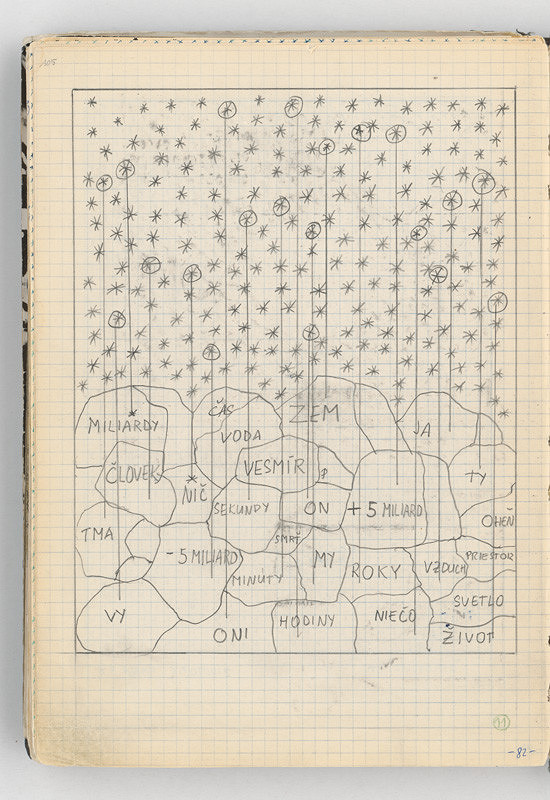 105
MILIARDY
ČAS
ZEM
VODA
JA
ČLOVEK
VESMÍR
TY
NIČ
SEKUNDY
ON
+ 5 MILIARD
OHEŇ
TMA
SMRŤ
- 5 MILIARD
MY
PRIESTOR
MINUTY
ROKY
VZDUCH
SVETLO
VY
ONI
HODINY
NIEČO
ŽIVOT
11
-82-